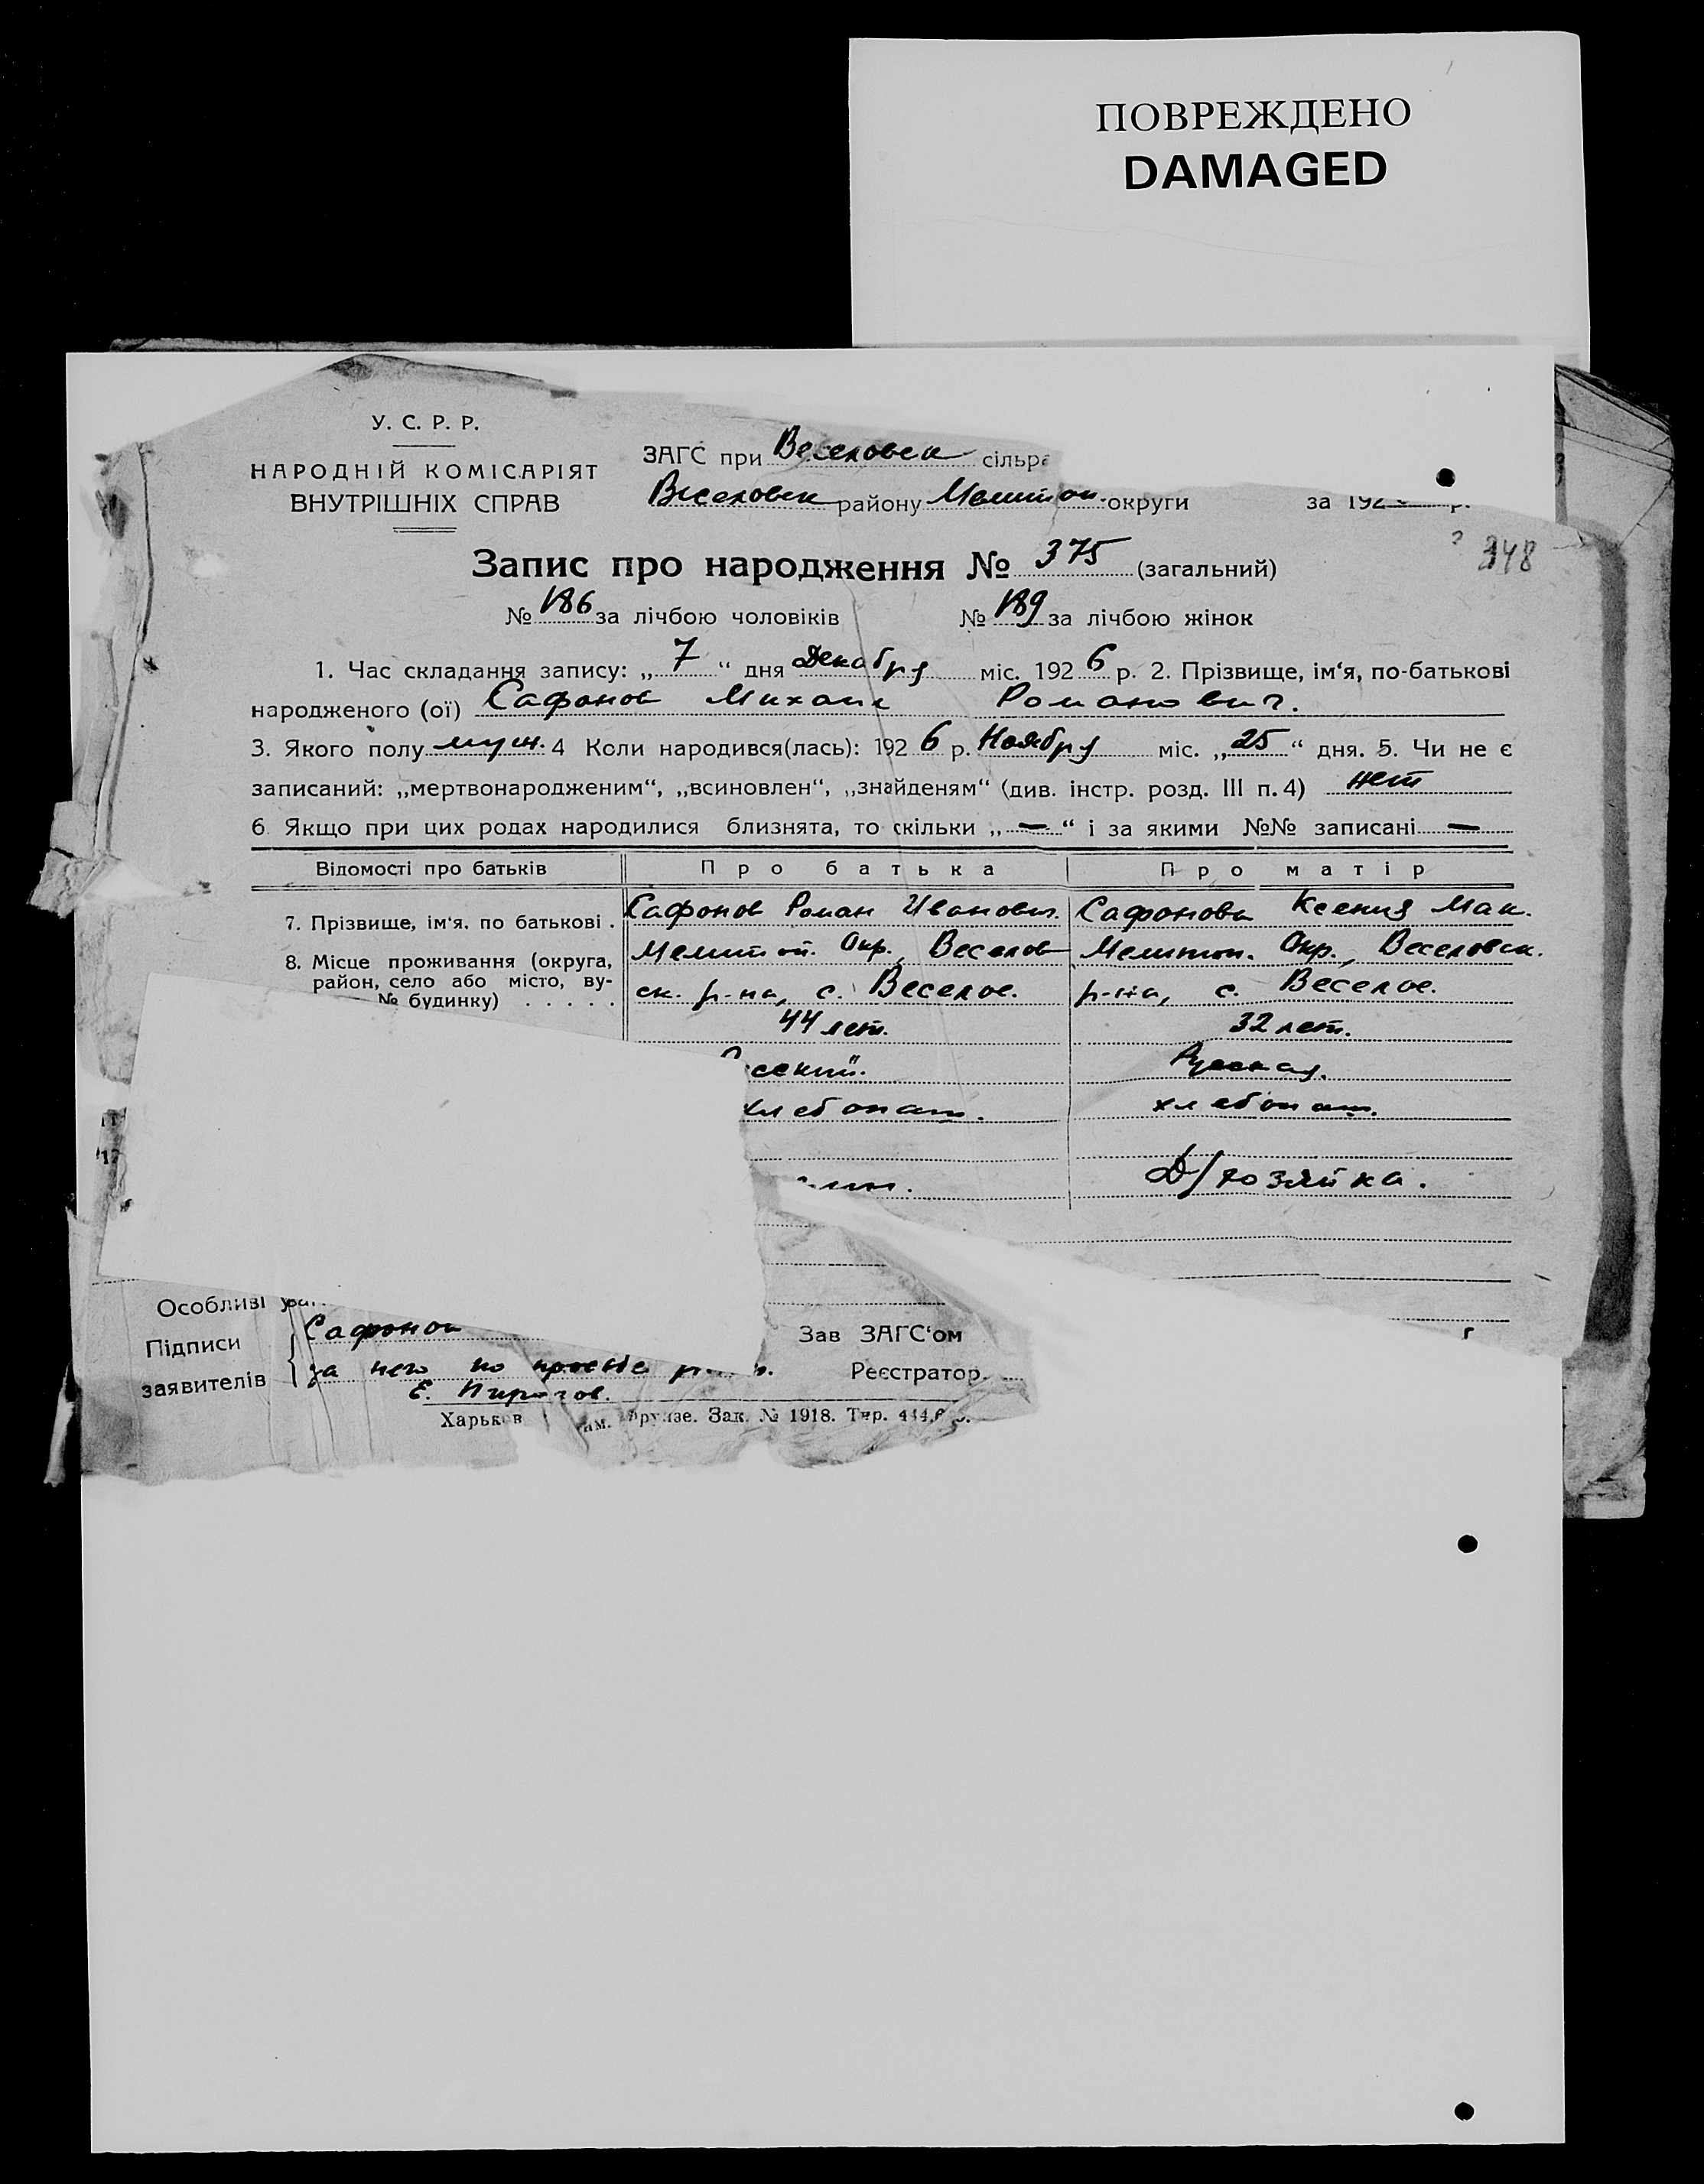 ПОВРЕЖДЕНО
DAMAGED
У. С. Р. Р.
НАРОДНІЙ КОМІСАРІЯТ
ВНУТРІШНІХ СПРАВ
ЗАГС при Веселовск сільра
Веселовск району Мелитоп. округи за 192
348
Запис про народження № 375 (загальний)
№ 186 за лічбою чоловіків № 189 за лічбою жінок
1. Час складання запису: „ 7 “ дня Декабря міс. 192 6 р. 2. Прізвище, ім‘я, по-батькові
народженого (ої) Сафонов Михаил Романович.
3. Якого полу муж. 4 Коли народився(лась): 192 6 р. Ноября міс. „ 25 “ дня. 5. Чи не є
записаний: „мертвонародженим“, „всиновлен“, „знайденям“ (див. інстр. розд. III п. 4) нет
6. Якщо при цих родах народилися близнята, то скільки „ — “ і за якими №№ записані —
Відомості про батьків Про батька Про матір
7. Прізвище, ім‘я, по батькові . Сафонов Роман Иванович. Сафонова Ксения Мак.
8. Місце проживання (округа, Мелитоп. Окр., Веселов Мелитоп. Окр., Веселовск.
район, село або місто, ву- ск. р-на, с. Веселое. р-на, с. Веселое.
№ будинку) . . . . .
44 лет. 32 лет.
сский. Русская.
хлебопаш. хлебопаш.
Д/хозяйка.
Особливі
Підписи Сафонов Зав ЗАГС‘ом
заявителів за него по просьбе Реєстратор.
Е. Пирогов.
Харьков им. Фрунзе. Зак. № 1918. Тир.